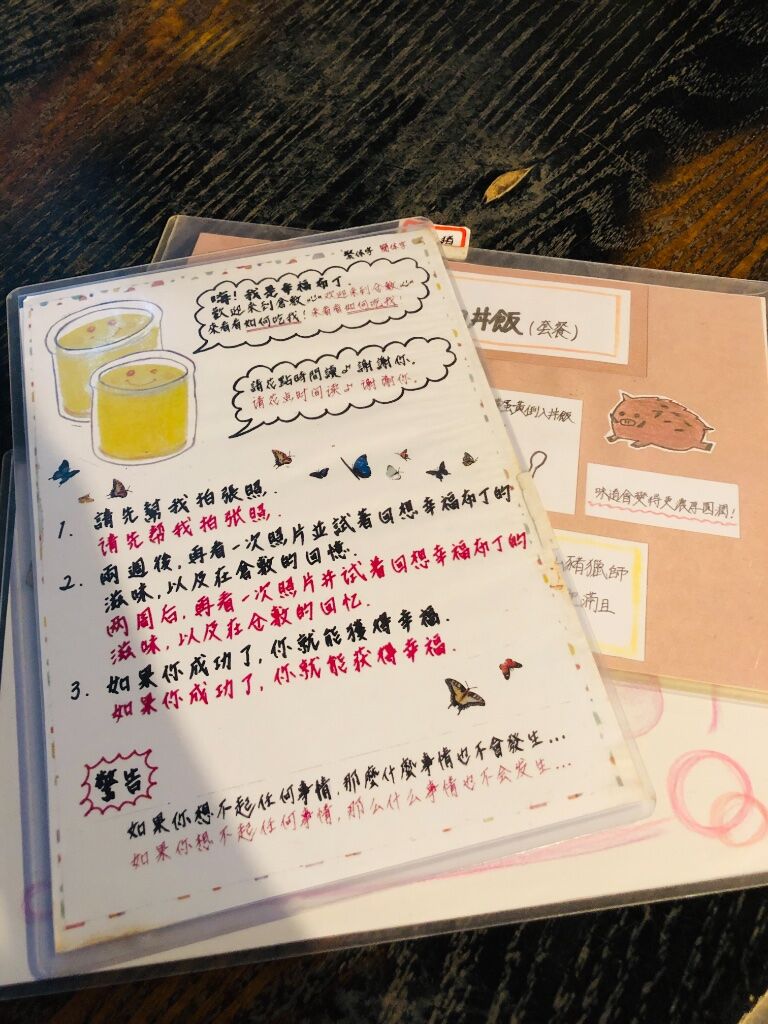 繁体字 簡体字
嗨！我是幸福布丁.
歡迎來到倉敷心~欢迎来到仓敷心~
來看看如何吃我！来看看如何吃我！
請花點時間讀♪ 謝謝你、
请花点时间读♪ 谢谢你、
1. 請先幫我拍張照.
请先帮我拍张照.
2. 兩週後,再看一次照片並試着回想幸福布丁的
滋味,以及在倉敷的回憶.
两周后,再看一次照片并试着回想幸福布丁的
滋味,以及在仓敷的回忆.
3. 如果你成功了,你就能獲得幸福.
如果你成功了,你就能获得幸福.
警告
如果你想不起任何事情,那麼什麼事情也不會發生...
如果你想不起任何事情,那么什么事情也不会发生...
丼飯（套餐）
蛋黃倒入丼飯
味道會變得更濃厚圓潤!
豬獵師
滿且